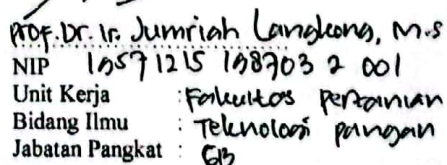 Prof. Dr. Ir. Jumriah Langkong, M.S
NIP 19571215 198703 2 001
Unit Kerja : Fakultas Pertanian
Bidang Ilmu : Teknologi pangan
Jabatan Pangkat : GB